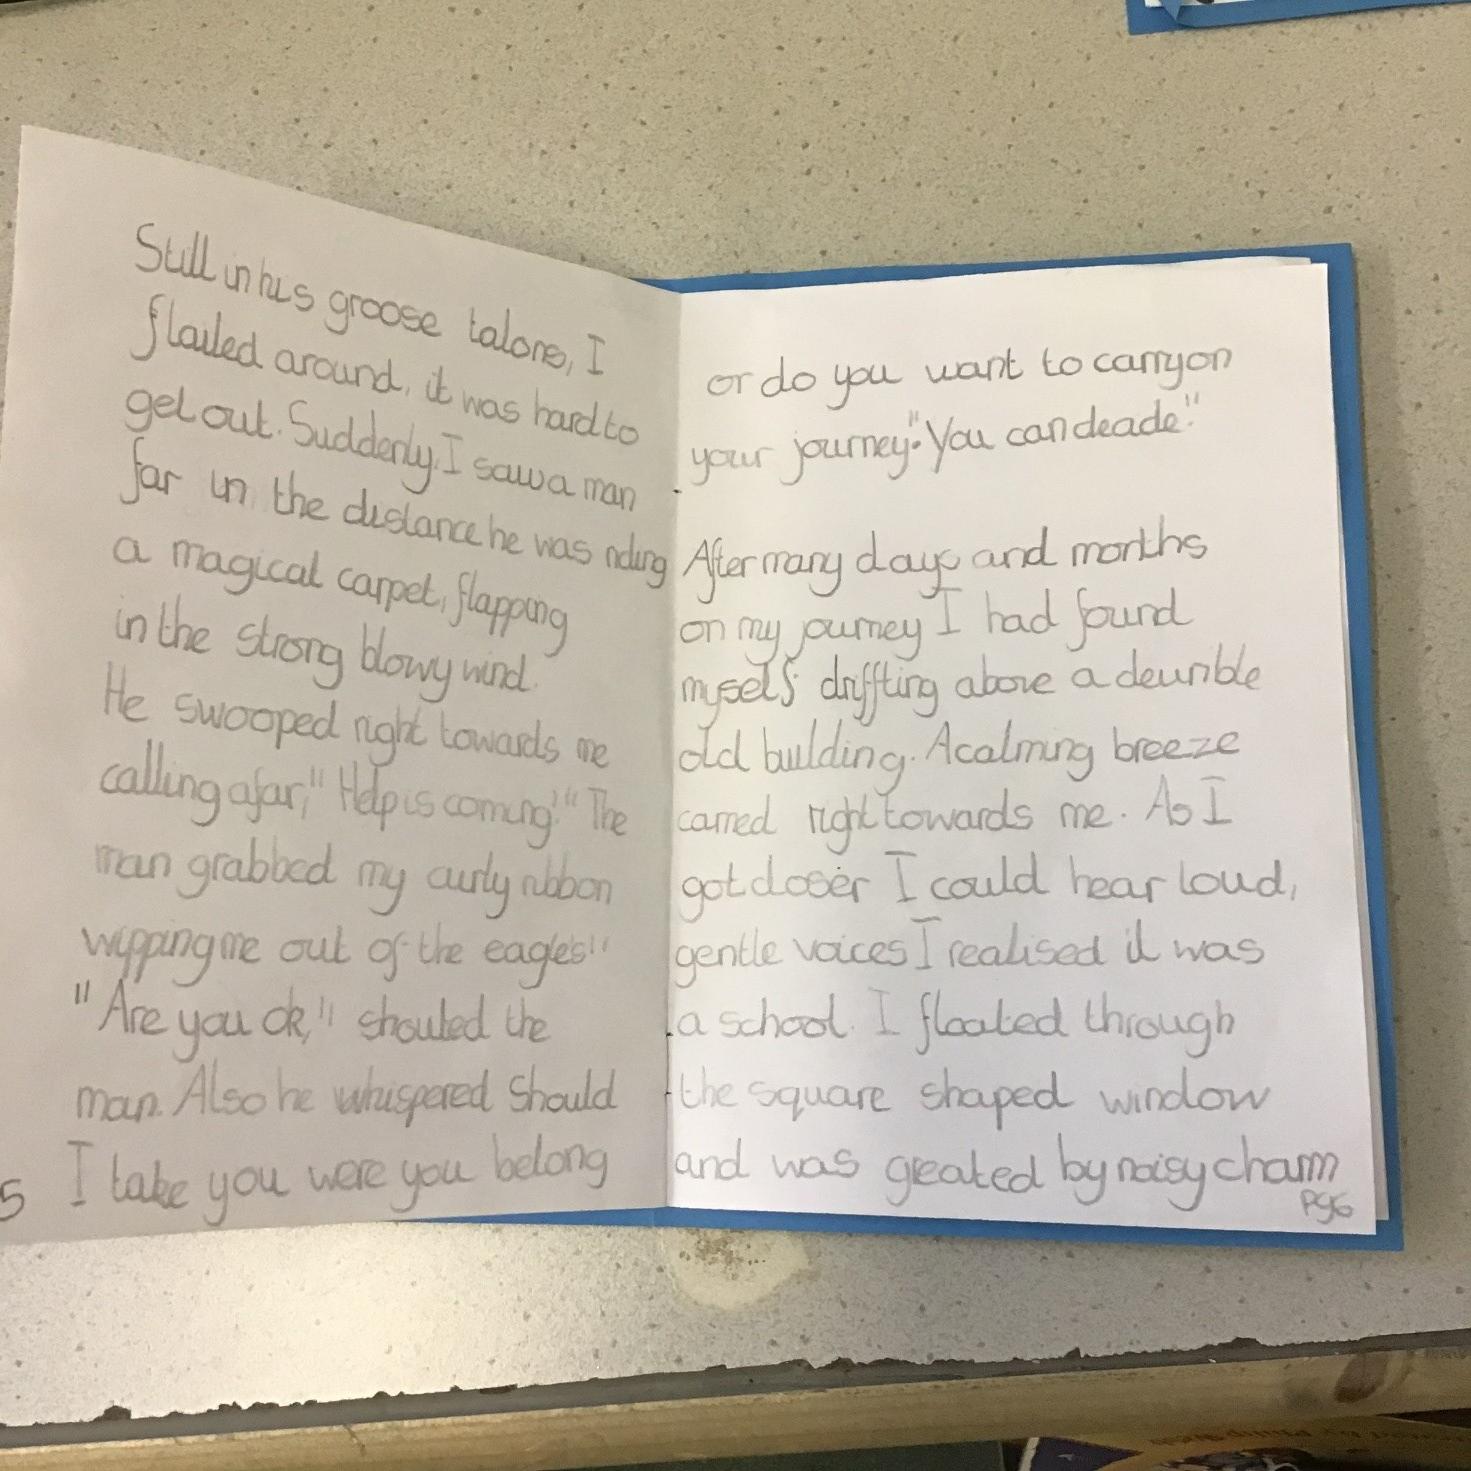 Still in his groose talons, I
flailed around, it was hard to
get out. Suddenly, I saw a man
far in the distance he was riding
a magical carpet, flapping
in the strong blowy wind.
He swooped right towards me
calling afar," Help is coming!" The
man grabbed my curly ribbon
wipping me out of the eagles"
"Are you ok," shouted the
man. Also he whispered Should
I take you were you belong
5
or do you want to carry on
your journey". You can deade."
After many days and months
on my journey I had found
myself driffting above a deurible
old building. A calming breeze
carried right towards me. As I
got closer I could hear loud,
gentle voices I realised it was
a school. I floated through
the square shaped window
and was greated by noisy charm
Pg6